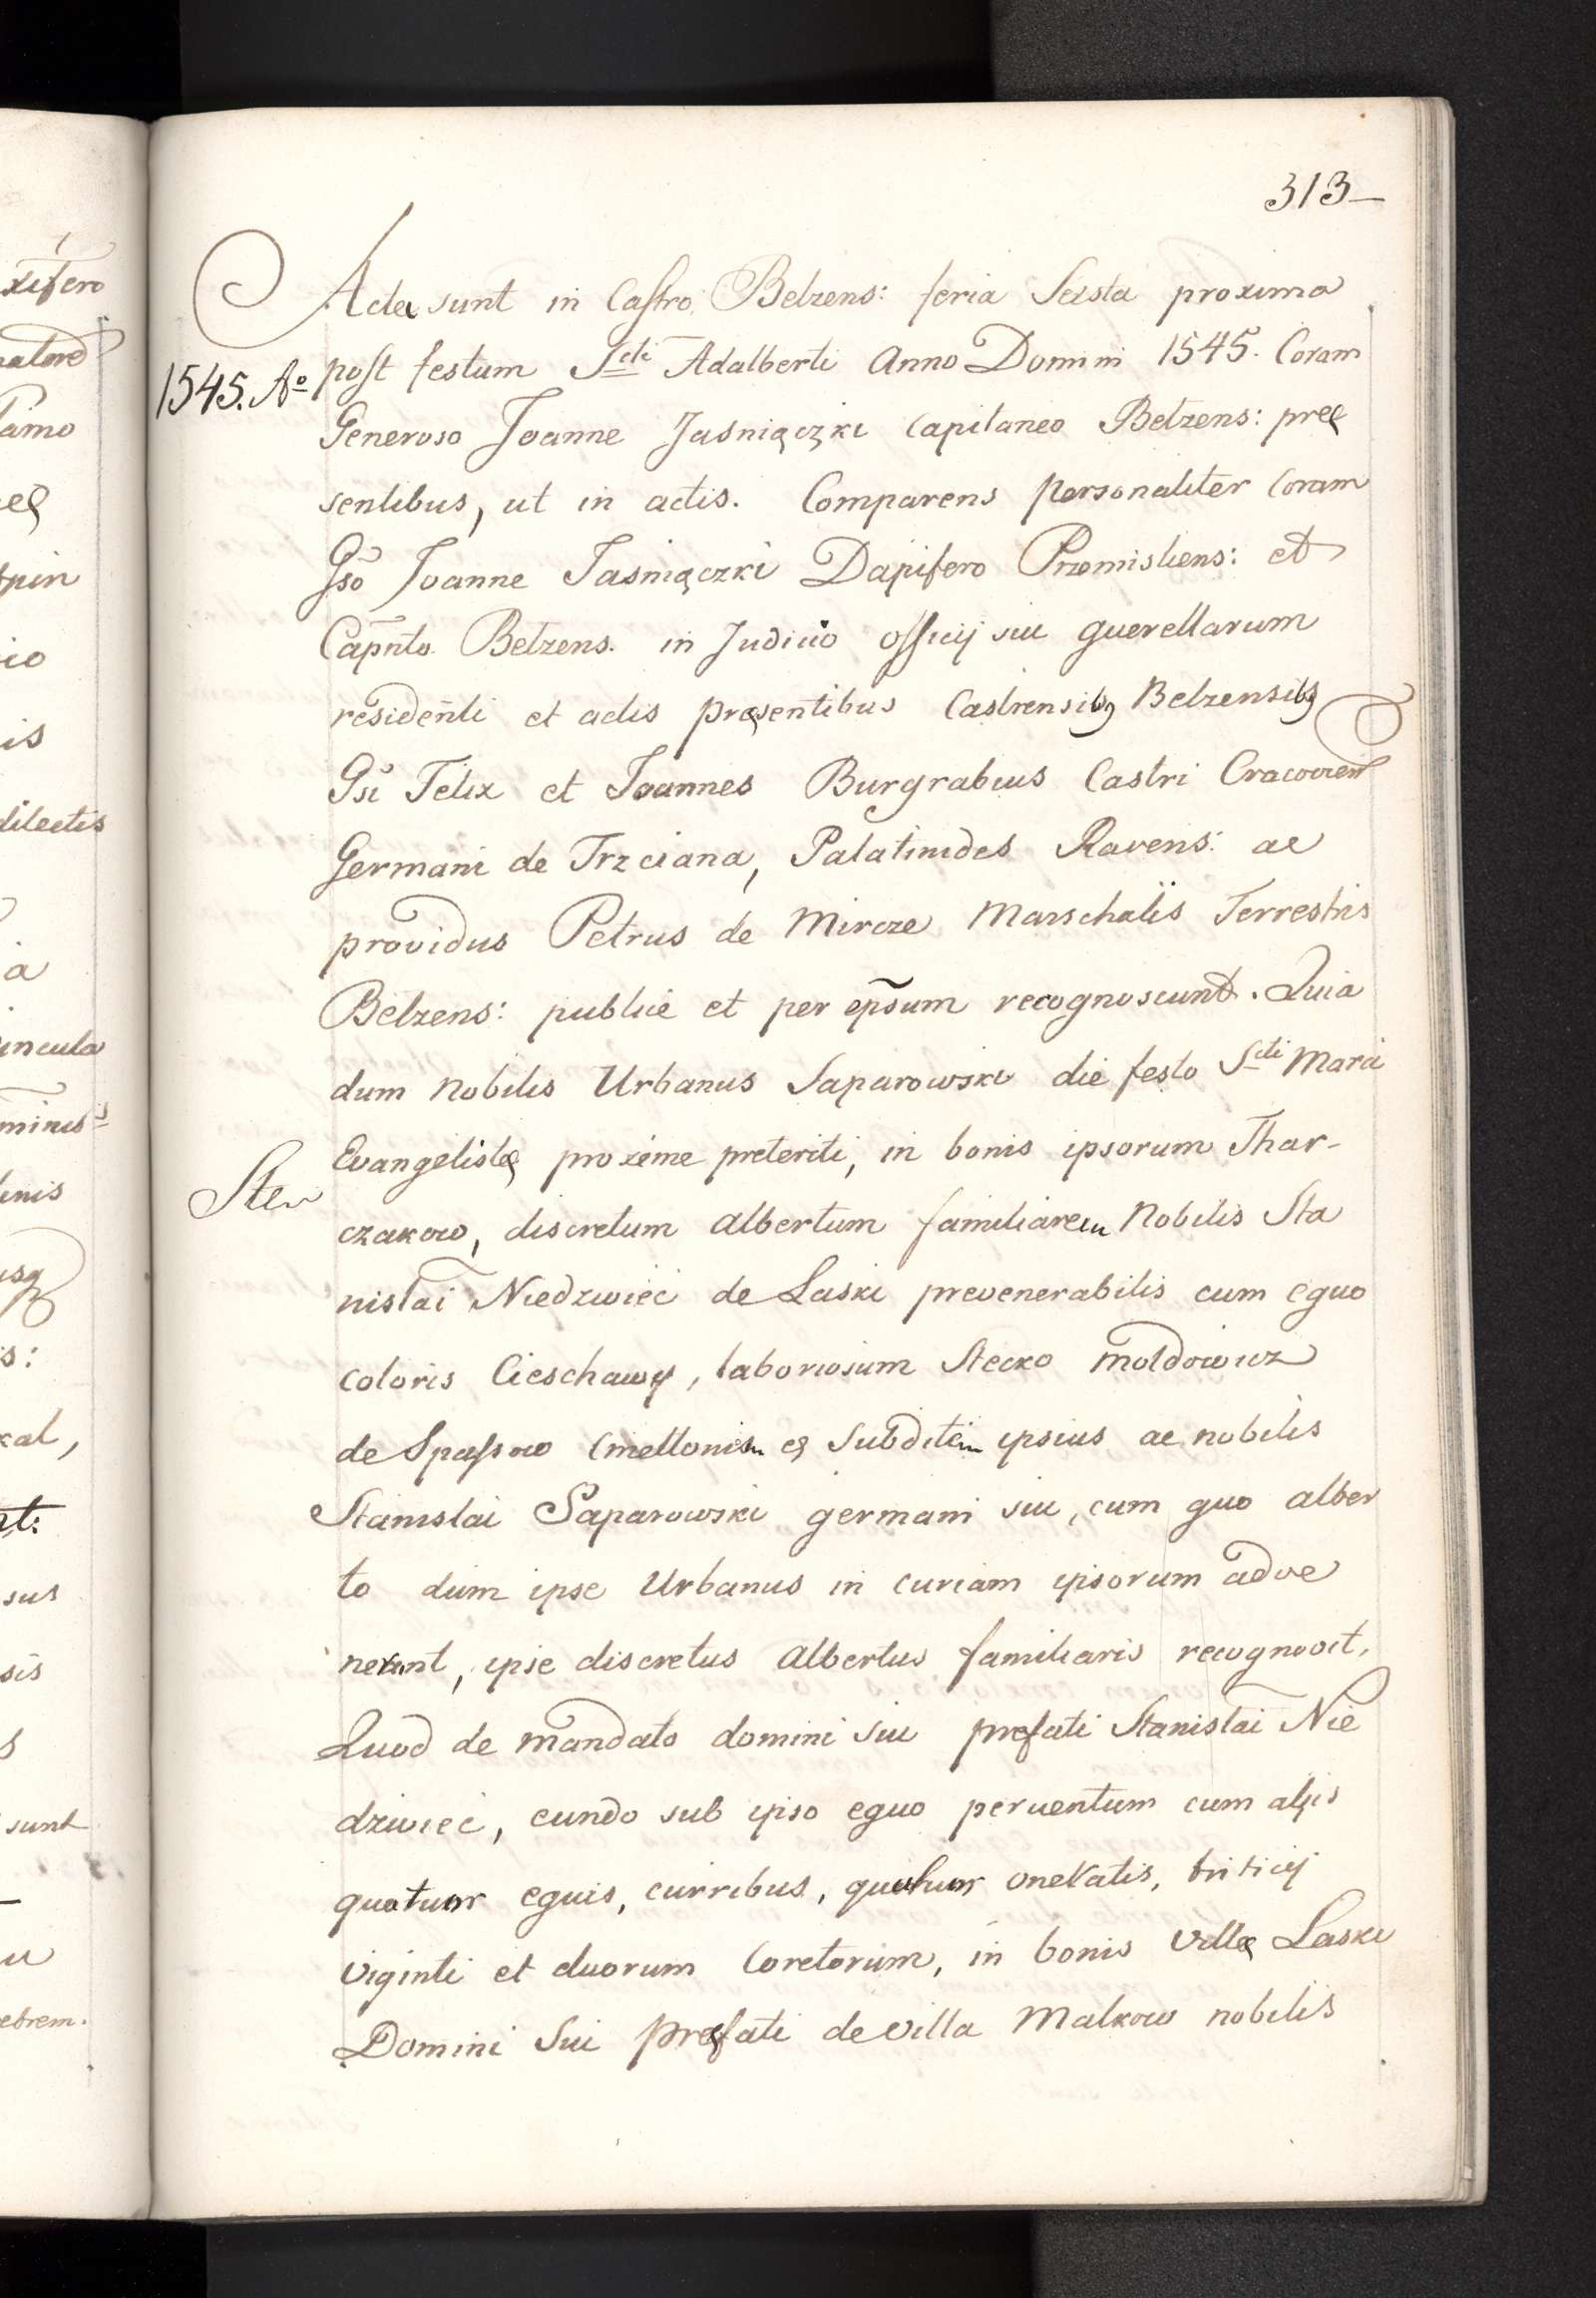 313
Acta sunt in Castro Belzens: feria Sexta proxima
1545. Aº post festum Scti Adalberti Anno Domini 1545. Coram
Generoso Joanne Jasniączki Capitaneo Belzens: prę
sentibus, ut in actis. Comparens personaliter coram
Gso Joanne Jasniączki Dapifero Przemisliens: et
Capnto Belzens. in Judicio officij sui querellarum
residenti et actis pręsentibus Castrensibg Belzensibg
Gsi Felix et Joannes Burgrabius Castri Cracovien
Germani de Trzciana, Palatinides Ravens: ac
providus Petrus de Mircze Marschalis Terrestris
Belzens: publice et per epsum recognoscunt. Quia
dum Nobilis Urbanus Saparowski die festo Scti Marci
Evangelistę proxime preteriti, in bonis ipsorum Thar-
Ste
czakow, discretum Albertum familiarem Nobilis Sta
nislai Niedzwiec de Laski prevenerabilis cum equo
coloris Cieschawy, laboriosum Stecko Moldowicz
de Spassow Cmettonem et Subditem ipsius ac nobilis
Stanislai Saparowski germani sui, cum quo Alber
to dum ipse Urbanus in curiam ipsorum adve
nerunt, ipse discretus Albertus familiaris recognovit.
Quod de mandato domini sui prefati Stanislai Nie
dzwiec, eundo sub ipso equo perventum cum alijs
quatuor equis, curribus, quatuor oneratis, triticij
viginti et duorum Coretorum, in bonis villę Laski
Domini Sui pręfati de villa Malkow nobilis